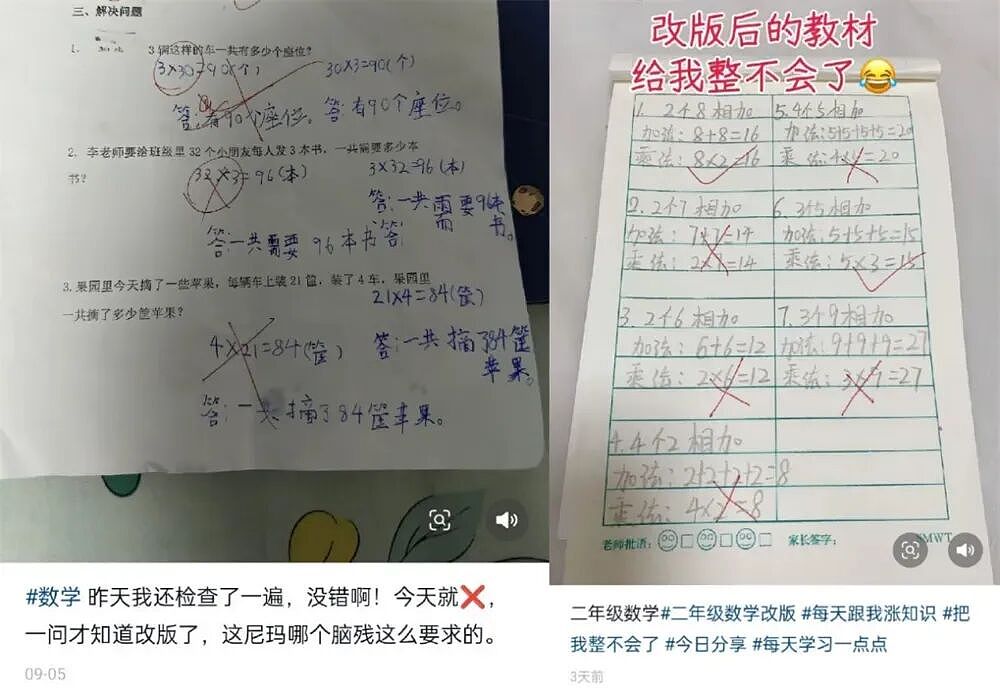 三、解决问题
1.
3辆这样的车一共有多少个座位?
3×30=90(个)
30×3=90(个)
答:有90个座位。
答:有90个座位。
2. 李老师要给班级里32个小朋友每人发3本书,一共需要多少本
书?
32×3=96(本)
3×32=96(本)
答:一共需要96本
书。
答:一共需要 96本书
答:
3.果园里今天摘了一些苹果,每辆车上装21筐,装了4车,果园里
一共摘了多少筐苹果?
21×4=84(筐)
4×21=84(筐)
答:一共摘了84筐
苹果。
答:一共摘了84筐苹果。
#数学 昨天我还检查了一遍,没错啊!今天就❌,
一问才知道改版了,这尼玛哪个脑残这么要求的。
09-05
改版后的教材
给我整不会了😂
1. 2个8相加
加法:8+8=16
乘法:8×2=16
2. 2个7相加
加法:7+7=14
乘法:2×7=14
3. 2个6相加
加法:6+6=12
乘法:2×6=12
4. 4个2相加
加法:2+2+2+2=8
乘法:4×2=8
5. 4个5相加
加法:5+5+5+5=20
乘法:
=20
6. 3个5相加
加法:5+5+5=15
乘法:5×3=15
7. 3个9相加
加法:9+9+9=27
乘法:
=27
老师批语:
家长签字:
SMWT
二年级数学#二年级数学改版 #每天跟我涨知识 #把
我整不会了 #今日分享 #每天学习一点点
3天前